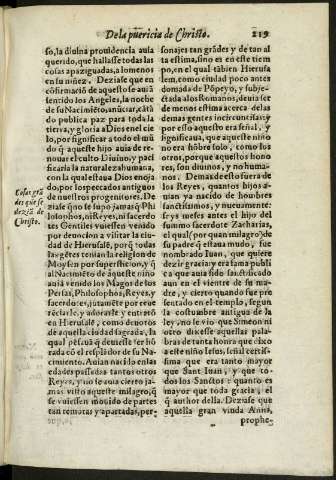 De la puericia de Christo. 219
so, la diuina prouidencia auia
querido, que hallasse todas las
cosas apaziguadas, a lo menos
en su niñez. Deziase que en
cõfirmació de aquesto se auiá
sentido los Angeles, la noche
de su Nacimiẽto, anũciar, cátã
do publica paz para toda la
tierra, y gloria a Dios en el cie
lo, por significar a todo el mũ
do q̃ aqueste hijo auia de re-
nouar el culto Diuino, y paci
ficaria la naturaleza humana,
con la qual estaua Dios enoja
do, por los peccados antiguos
de nuestros progenitores. De
ziase q̃ no se supo jamas q̃ Phi
losophos, ni Reyes, ni sacerdo
tes Gentiles vuiessen venido
por deuocion a visitar la ciu
dad de Hierusalẽ, porq̃ todas
las gẽtes tenian la religion de
Moysen por supersticion, y q̃
al Nacimiẽto de aqueste niño
auiá venido los Magos de los
Persas, Philosophos, Reyes, y
sacerdotes, jutamẽte por reue
rẽciarle, y adorarle y entrarõ
en Hierusalẽ, como deuotos
de aquella ciudad sagrada, la
qual pẽsauã q̃ deuiesse ser hõ
rada cõ el respecto de su Na-
cimiento. Auian nacido en las
edades passadas tantos otros
Reyes, y no se auia cierto ja-
mas visto aqueste milagro, q̃
se vuiessen mouido de partes
tan remotas y apartadas, per-
Cosas grã
des que se
deziã de
Christo.
sonajes tan grãdes y de tan al
ta estima, sino es en este tiem
po, en el qual tãbien Hierusa
lem, como ciudad poco antes
domada de Põpeyo, y subje-
ctada a los Romanos, deuia ser
de menos estima acerca de las
demas gentes incircuncisas: y
por esso aquesto era señal, y
significaua, que aqueste niño
no era hõbre solo, como los
otros, porque aquestos hono
res, son diuinos, y no humanos
Demas desto fuera de
los Reyes, quantos hijos a-
uian ya nacido de hombres
sanctissimos, y nueuamente
seys meses antes el hijo del
summo sacerdote Zacharias,
el qual (por quan milagro de
su padre q̃ estaua mudo, fue
nombrado Iuan, que quiere
dezir gracia) y era fama publi
ca que auia sido sanctificado
aun en el vientre de su ma-
dre, y cierto quando fue pre
sentado en el templo, segun
la costumbre antigua de la
ley, no le vio que Simeon ni
otro dixesse aquellas palabras
de tanta honra que dixo
a este niño Iesus, señal certis-
sima que era tanto mayor
que Sant Iuan, y que to-
dos los Sanctos: quanto es
mayor que toda gracia, el
q̃ author della. Deziase que
aquella gran viuda Anna,
prophe-